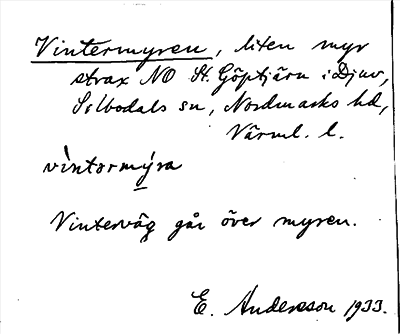 Vintermyren, liten myr
strax NO St. Göptjärn i Djuv,
Silbodals sn, Nordmarks hd,
Värml. l.
vìntərmy̗ra
Vinterväg går över myren.
E. Andersson 1933.